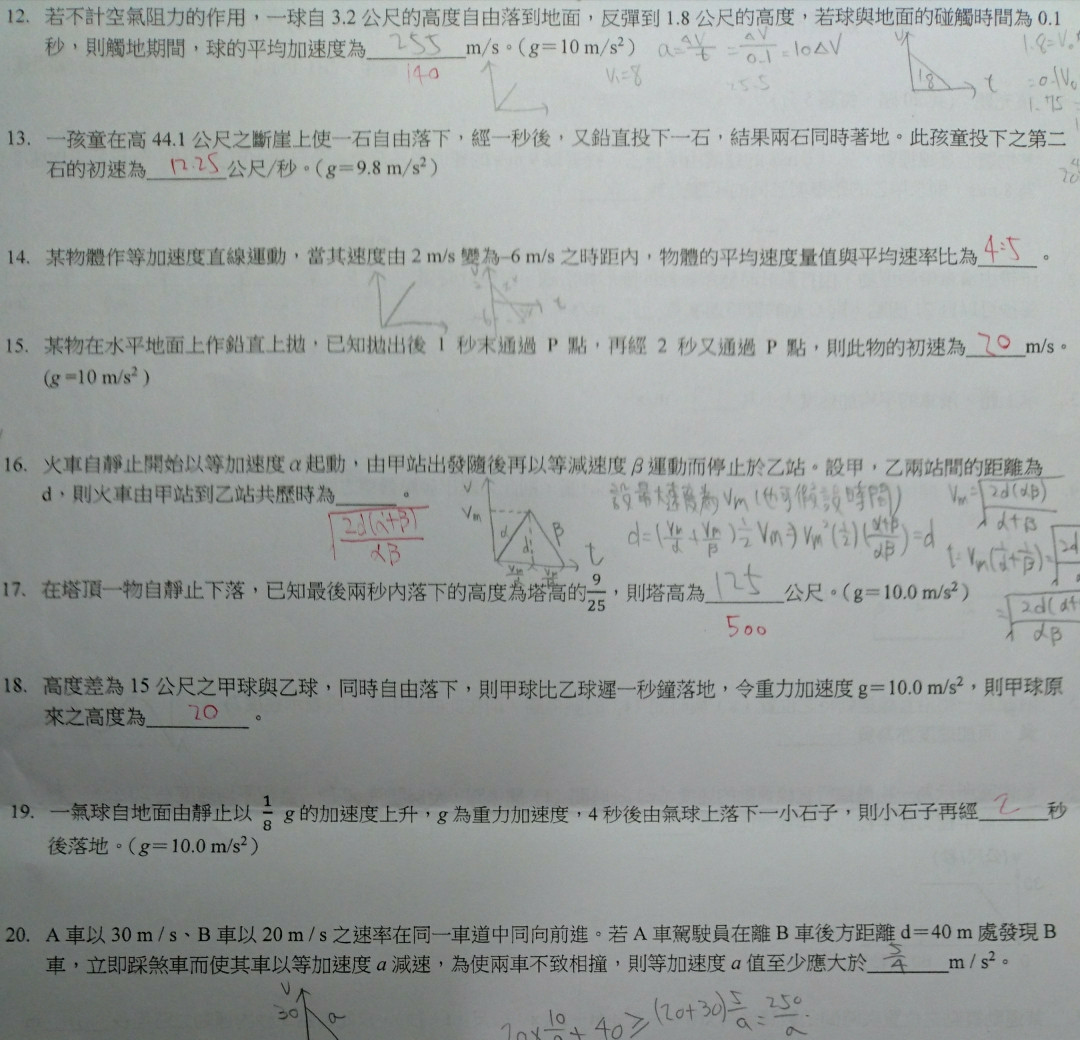 12. 若不計空氣阻力的作用，一球自 3.2 公尺的高度自由落到地面，反彈到 1.8 公尺的高度，若球與地面的碰觸時間為 0.1
秒，則觸地期間，球的平均加速度為 255 m/s。(g=10 m/s²) a=ΔV/t =ΔV/0.1 =10ΔV
140
V₁=8
13. 一孩童在高 44.1 公尺之斷崖上使一石自由落下，經一秒後，又鉛直投下一石，結果兩石同時著地。此孩童投下之第二
石的初速為 12.25 公尺/秒。(g=9.8 m/s²)
14. 某物體作等加速度直線運動，當其速度由 2 m/s 變為–6 m/s 之時距內，物體的平均速度量值與平均速率比為 4:5 。
15. 某物在水平地面上作鉛直上拋，已知拋出後 1 秒末通過 P 點，再經 2 秒又通過 P 點，則此物的初速為 20 m/s。
(g =10 m/s² )
16. 火車自靜止開始以等加速度 α 起動，由甲站出發隨後再以等減速度 β 運動而停止於乙站。設甲，乙兩站間的距離為
d，則火車由甲站到乙站共歷時為 。 設最大速度為 Vm (也可假設時間) Vm=√2d(αβ)/α+β
√2d(α+β)/αβ
V Vm α β d t d=(Vm/α+Vm/β)½Vm⇒Vm²(½)(α+β/αβ)=d t=Vm(1/α+1/β)=√2d
17. 在塔頂一物自靜止下落，已知最後兩秒內落下的高度為塔高的 9/25，則塔高為 125 公尺。(g=10.0 m/s²)
500
18. 高度差為 15 公尺之甲球與乙球，同時自由落下，則甲球比乙球遲一秒鐘落地，令重力加速度 g=10.0 m/s²，則甲球原
來之高度為 20 。
19. 一氣球自地面由靜止以 1/8 g 的加速度上升，g 為重力加速度，4 秒後由氣球上落下一小石子，則小石子再經 2 秒
後落地。(g=10.0 m/s²)
20. A 車以 30 m / s、B 車以 20 m / s 之速率在同一車道中同向前進。若 A 車駕駛員在離 B 車後方距離 d=40 m 處發現 B
車，立即踩煞車而使其車以等加速度 a 減速，為使兩車不致相撞，則等加速度 a 值至少應大於 5/4 m / s²。
V 30 a 20×10/a+40≥(20+30)5/a=250/a